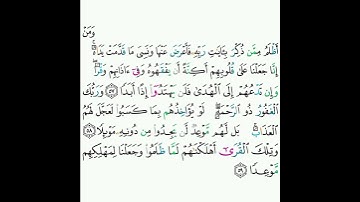 وَمَنْ
أَظْلَمُ مِمَّن ذُكِّرَ بِـَٔايَٰتِ رَبِّهِۦ فَأَعْرَضَ عَنْهَا وَنَسِىَ مَا قَدَّمَتْ يَدَاهُ ۚ
إِنَّا جَعَلْنَا عَلَىٰ قُلُوبِهِمْ أَكِنَّةً أَن يَفْقَهُوهُ وَفِىٓ ءَاذَانِهِمْ وَقْرًا ۖ
وَإِن تَدْعُهُمْ إِلَى ٱلْهُدَىٰ فَلَن يَهْتَدُوٓا۟ إِذًا أَبَدًا ۝٥٧ وَرَبُّكَ
ٱلْغَفُورُ ذُو ٱلرَّحْمَةِ ۖ لَوْ يُؤَاخِذُهُم بِمَا كَسَبُوا۟ لَعَجَّلَ لَهُمُ
ٱلْعَذَابَ ۚ بَل لَّهُم مَّوْعِدٌ لَّن يَجِدُوا۟ مِن دُونِهِۦ مَوْئِلًا ۝٥٨
وَتِلْكَ ٱلْقُرَىٰٓ أَهْلَكْنَٰهُمْ لَمَّا ظَلَمُوا۟ وَجَعَلْنَا لِمَهْلِكِهِم
مَّوْعِدًا ۝٥٩